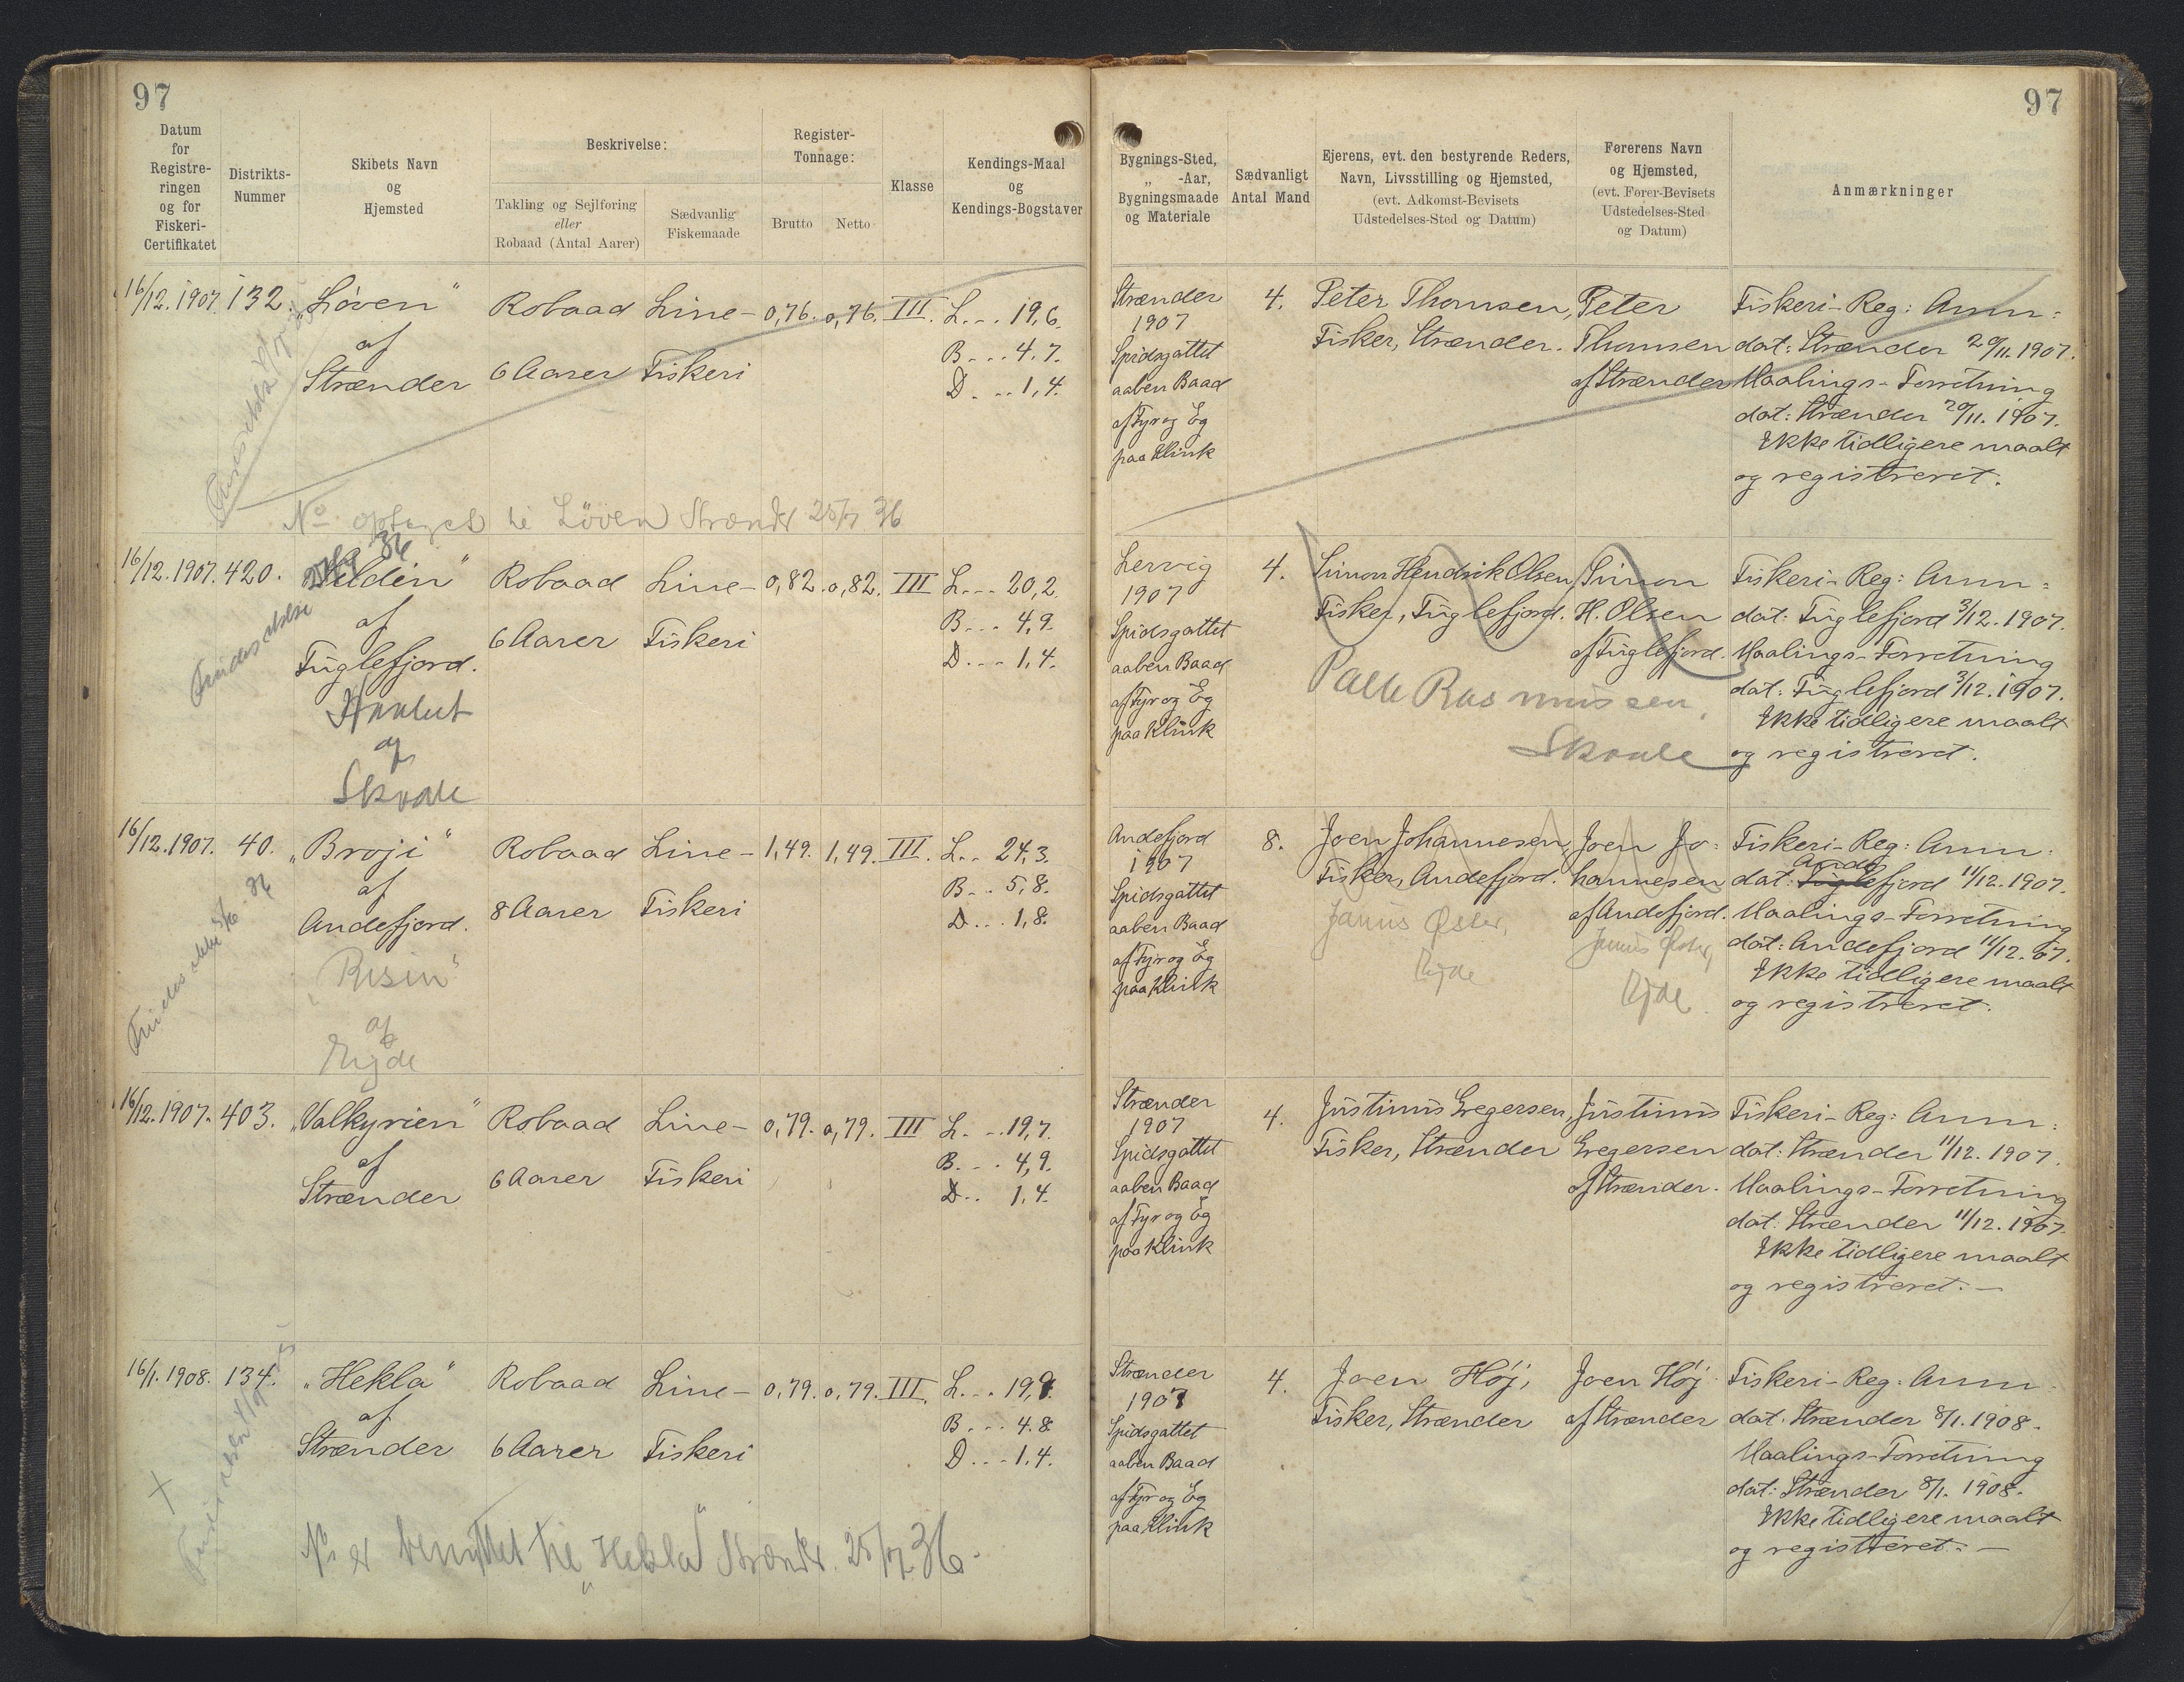 97
97
Datum
for
Registre-
ringen
og for
Fiskeri-
Certifikatet
Distrikts-
Nummer
Skibets Navn
og
Hjemsted
Beskrivelse:
Takling og Sejlføring
eller
Robaad (Antal Aarer)
Sædvanlig
Fiskemaade
Register-
Tonnage:
Brutto
Netto
Klasse
Kendings-Maal
og
Kendings-Bogstaver
Bygnings-Sted,
„ -Aar,
Bygningsmaade
og Materiale
Sædvanligt
Antal Mand
Ejerens, evt. den bestyrende Reders,
Navn, Livsstilling og Hjemsted,
(evt. Adkomst-Bevisets
Udstedelses-Sted og Datum)
Førerens Navn
og Hjemsted,
(evt. Fører-Bevisets
Udstedelses-Sted
og Datum)
Anmærkninger
16/12. 1907.
132.
„Løven"
af
Strænder
Robaad
6 Aarer
Line-
Fiskeri
0,76.
0,76.
III.
L... 19,6.
B... 4,7.
D... 1,4.
Strænder
1907
Spidsgattet
aaben Baad
af Fyr og Eg
paa Klink
4.
Peter Thomsen,
Fisker, Strænder.
Peter
Thomsen
af Strænder
Fiskeri-Reg: Anm:
dat: Strænder 20/11. 1907.
Maalings-Forretning
dat: Strænder 20/11. 1907.
Ikke tidligere maalt
og registreret.
No optaget Løven Strændr 25/7 36
16/12. 1907.
420.
af
Fuglefjord.
af
Skaale
Findes ikke
Robaad
6 Aarer
Line-
Fiskeri
0,82.
0,82.
III
L... 20,2.
B... 4,9.
D... 1,4.
Lervig
1907
Spidsgattet
aaben Baad
af Fyr og Eg
paa Klink
4.
Simon Hendrik Olsen,
Fisker, Fuglefjord.
Palle Rasmussen,
Skaale
Simon
H. Olsen
af Fuglefjord.
Fiskeri-Reg: Anm:
dat: Fuglefjord 3/12. 1907.
Maalings-Forretning
dat: Fuglefjord 3/12. 1907.
Ikke tidligere maalt
og registreret.
16/12. 1907.
40.
„Broji"
af
Andefjord.
„Risin"
af
Ejde
Findes ikke
Robaad
8 Aarer
Line-
Fiskeri
1,49.
1,49.
III.
L.. 24,3.
B.. 5,8.
D... 1,8.
Andefjord
1907
Spidsgattet
aaben Baad
af Fyr og Eg
paa Klink
8.
Joen Johannesen,
Fisker, Andefjord.
Janus Øster,
Ejde
Joen Jo-
hannesen
af Andefjord.
Janus Øster,
Ejde
Fiskeri-Reg: Anm:
Ande
dat: Fuglefjord 11/12. 1907.
Maalings-Forretning
dat: Andefjord 11/12. 07.
Ikke tidligere maalt
og registreret.
16/12. 1907.
403.
„Valkyrien"
af
Strænder
Robaad
6 Aarer
Line-
Fiskeri
0,79.
0,79.
III
L... 19,7.
B... 4,9.
D.. 1,4.
Strænder
1907
Spidsgattet
aaben Baad
af Fyr og Eg
paa Klink
4.
Justinus Gregersen,
Fisker, Strænder
Justinus
Gregersen
af Strænder.
Fiskeri-Reg: Anm:
dat: Strænder 11/12. 1907.
Maalings-Forretning
dat: Strænder 11/12. 1907.
Ikke tidligere maalt
og registreret. —
16/1. 1908.
134.
„Hekla"
af
Strænder
Robaad
6 Aarer
Line-
Fiskeri
0,79.
0,79.
III.
B... 4.8
D... 1.4.
Strænder
1907
Spidsgattet
aaben Baad
af Fyr og Eg
paa Klink
4.
Joen Høj,
Fisker, Strænder
Joen Høj
af Strænder
Fiskeri-Reg: Anm:
dat: Strænder 8/1. 1908.
Maalings-Forretning
dat: Strænder 8/1. 1908.
Ikke tidligere maalt
og registreret. —
No er benyttet til „Hekla" Strændr. 25/7 36.